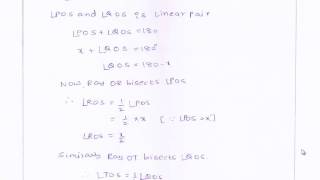 ∠POS and ∠QOS is Linear pair
∠POS + ∠QOS = 180
x + ∠QOS = 180°
∠QOS = 180 - x
Now Ray OR bisects ∠POS
∴ ∠ROS = 1/2 ∠POS
= 1/2 × x [∵ ∠POS = x]
∠ROS = x/2
Similarly Ray OT bisects ∠QOS
∴ ∠TOS = 1/2 ∠QOS